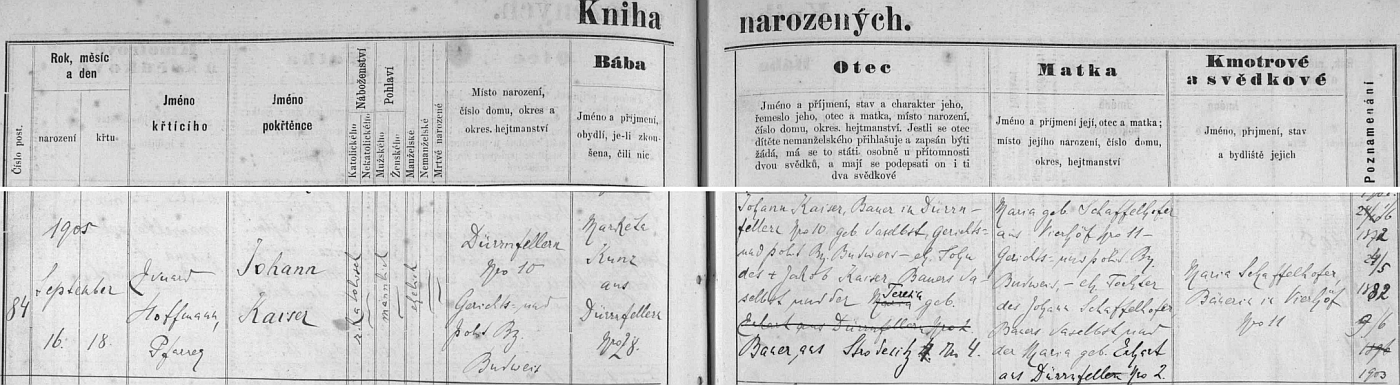 Kniha narozených.
Číslo post.
Rok, měsíc
a den
narození
křtu
Jméno
křtícího
Jméno
pokřtěnce
Náboženství
Katolického
Nekatolického
Pohlaví
Mužského
Ženského
Manželské
Nemanželské
Mrtvě narozené
Místo narození,
číslo domu, okres a
okres. hejtmanství
Bába
Jméno a příjmení,
obydlí, je-li zkou-
šena, čili nic
Otec
Jméno a příjmení, stav a charakter jeho,
řemeslo jeho, otec a matka, místo narození,
číslo domu, okres. hejtmanství. Jestli se otec
dítěte nemanželského přihlašuje a zapsán býti
žádá, má se to státi osobně u přítomnosti
dvou svědků, a mají se podepsati on i ti
dva svědkové
Matka
Jméno a příjmení její, otec a matka;
místo jejího narození, číslo domu,
okres, hejtmanství
Kmotrové
a svědkové
Jméno, příjmení, stav
a bydliště jejich
Poznamenání
84
1905
September
16. 18.
Hoffmann,
Pfarrer
Johann
Kaiser
männlich
ehelich
Dürrnfellern
Nro 10
Gerichts- und
polit. Bz.
Budweis
Markéta
Kunz
aus
Dürrnfellern
Nro 28.
Johann Kaiser, Bauer in Dürrn-
fellern Nro 10 geb. daselbst, Gerichts-
und polit. Bz. Budweis - eh. Sohn
des + Jakob Kaiser, Bauers da-
selbst und der Teresia geb.
Erhart aus Dürrnfellern Nro 2
Bauer, aus Strodenitz Nr. 4.
Maria geb. Schaffelhofer
aus Vierhöf Nro 11 -
Gerichts- und polit. Bz.
Budweis, - eh. Tochter
des Johann Schaffelhofer
Bauers daselbst und
der Maria geb. Erhart
aus Dürrnfellern Nro 2.
Maria Schaffelhofer,
Bäuerin in Vierhöf
Nro 11
1872
24/5
1882
9/6
1903